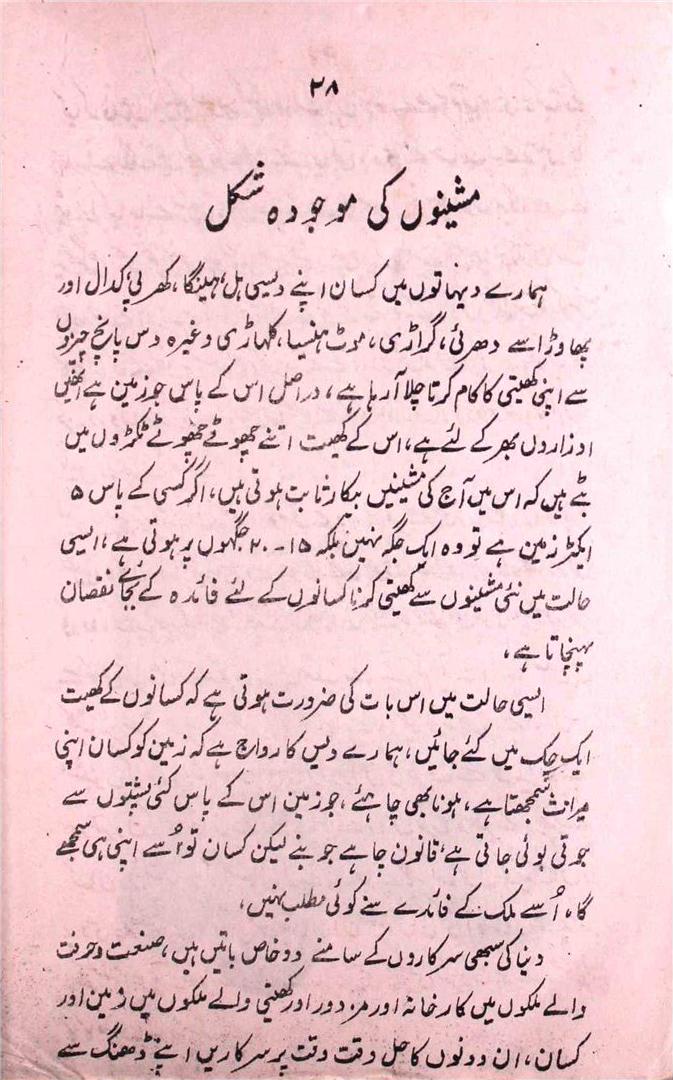 ۲۸
مشینوں کی موجودہ شکل
ہمارے دیہاتوں میں کسان اپنے دیسی ہل، ہلینگا، کھرپی، کدال اور
پھاوڑا سے دھرئی، گراڑی، موٹ ہنسیا، کلہاڑی وغیرہ دس پانچ چیزوں
سے اپنی کھیتی کا کام کرتا چلا آرہا ہے، دراصل اس کے پاس جو زمین ہے انھیں
اوزار دل بھر کے لئے ہے، اس کے کھیت اتنے چھوٹے چھوٹے ٹکڑوں میں
بٹے ہیں کہ اس میں آج کی مشینیں بیکار ثابت ہوتی ہیں، اگر کسی کے پاس ۵
ایکڑ زمین ہے تو وہ ایک جگہ نہیں بلکہ ۱۵-۲۰ جگہوں پر ہوتی ہے، ایسی
حالت میں نئی مشینوں سے کھیتی کرنا کسانوں کے لئے فائدہ کے بجائے نقصان
پہنچاتا ہے،
ایسی حالت میں اس بات کی ضرورت ہوتی ہے کہ کسانوں کے کھیت
ایک چک میں کئے جائیں، ہمارے دیس کا رواج ہے کہ زمین کو کسان اپنی
میراث سمجھتا ہے، ہونا بھی چاہئے، جو زمین اس کے پاس کئی پشتوں سے
جوتی بوئی جاتی ہے، قانون چاہے جو بنے لیکن کسان تو اُسے اپنی ہی سمجھے
گا، اُسے ملک کے فائدے سے کوئی مطلب نہیں،
دنیا کی سبھی سرکاروں کے سامنے دو خاص باتیں ہیں، صنعت و حرفت
والے ملکوں میں کارخانہ اور مزدور اور کھیتی والے ملکوں میں زمین اور
کسان، ان دونوں کا حل وقت وقت پر سرکاریں اپنے ڈھنگ سے